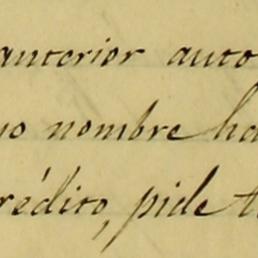 anterior auto
yo nombre ha
rédito, pide t